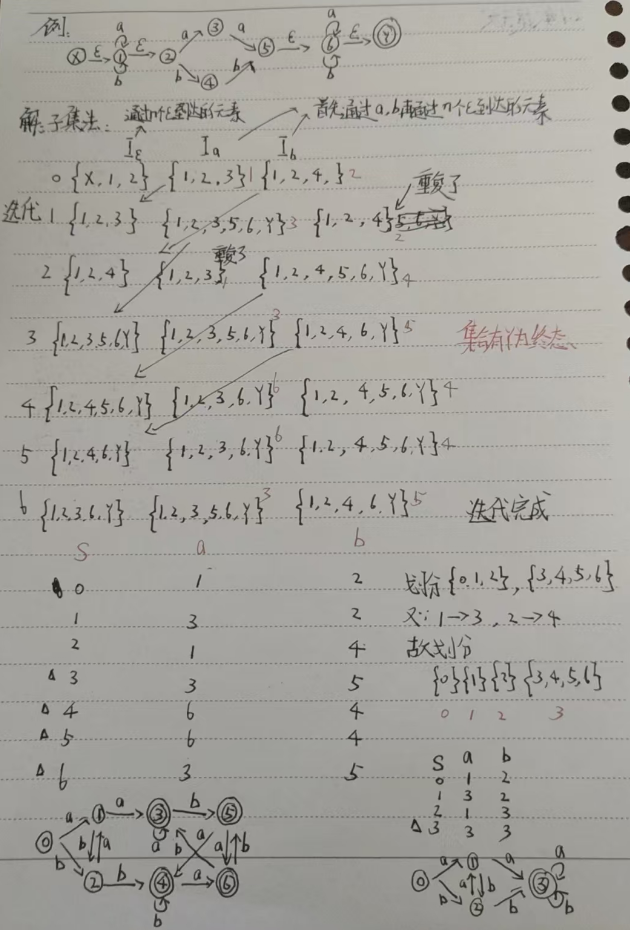 例:
a a a
X ε 1 ε 2 a 3 a 5 ε 6 ε Y
b b 4 b b
解:子集法: 通过n个ε到达的元素 首先通过a,b再通过n个ε到达的元素
Iε Ia Ib
0 {X,1,2} {1,2,3}1 {1,2,4,}2
重复了
迭代 1 {1,2,3} {1,2,3,5,6,Y}3 {1,2,4}2
重复了
2 {1,2,4} {1,2,3}1 {1,2,4,5,6,Y}4
3 {1,2,3,5,6,Y} {1,2,3,5,6,Y}3 {1,2,4,6,Y}5 集合有Y为终态
4 {1,2,4,5,6,Y} {1,2,3,6,Y}6 {1,2,4,5,6,Y}4
5 {1,2,4,6,Y} {1,2,3,6,Y}6 {1,2,4,5,6,Y}4
6 {1,2,3,6,Y} {1,2,3,5,6,Y}3 {1,2,4,6,Y}5 迭代完成
S a b
0 1 2 划分{0,1,2},{3,4,5,6}
1 3 2 又∵1→3,2→4
2 1 4 故划分
Δ 3 3 5 {0}{1}{2}{3,4,5,6}
Δ 4 6 4 0 1 2 3
Δ 5 6 4
Δ 6 3 5
S a b
0 1 2
1 3 2
2 1 3
Δ 3 3 3
a 1 a 3 b 5
0 b a a b a b
b 2 b 4 a 6
b
a 1 a a
0 a b 3
b 2 b b